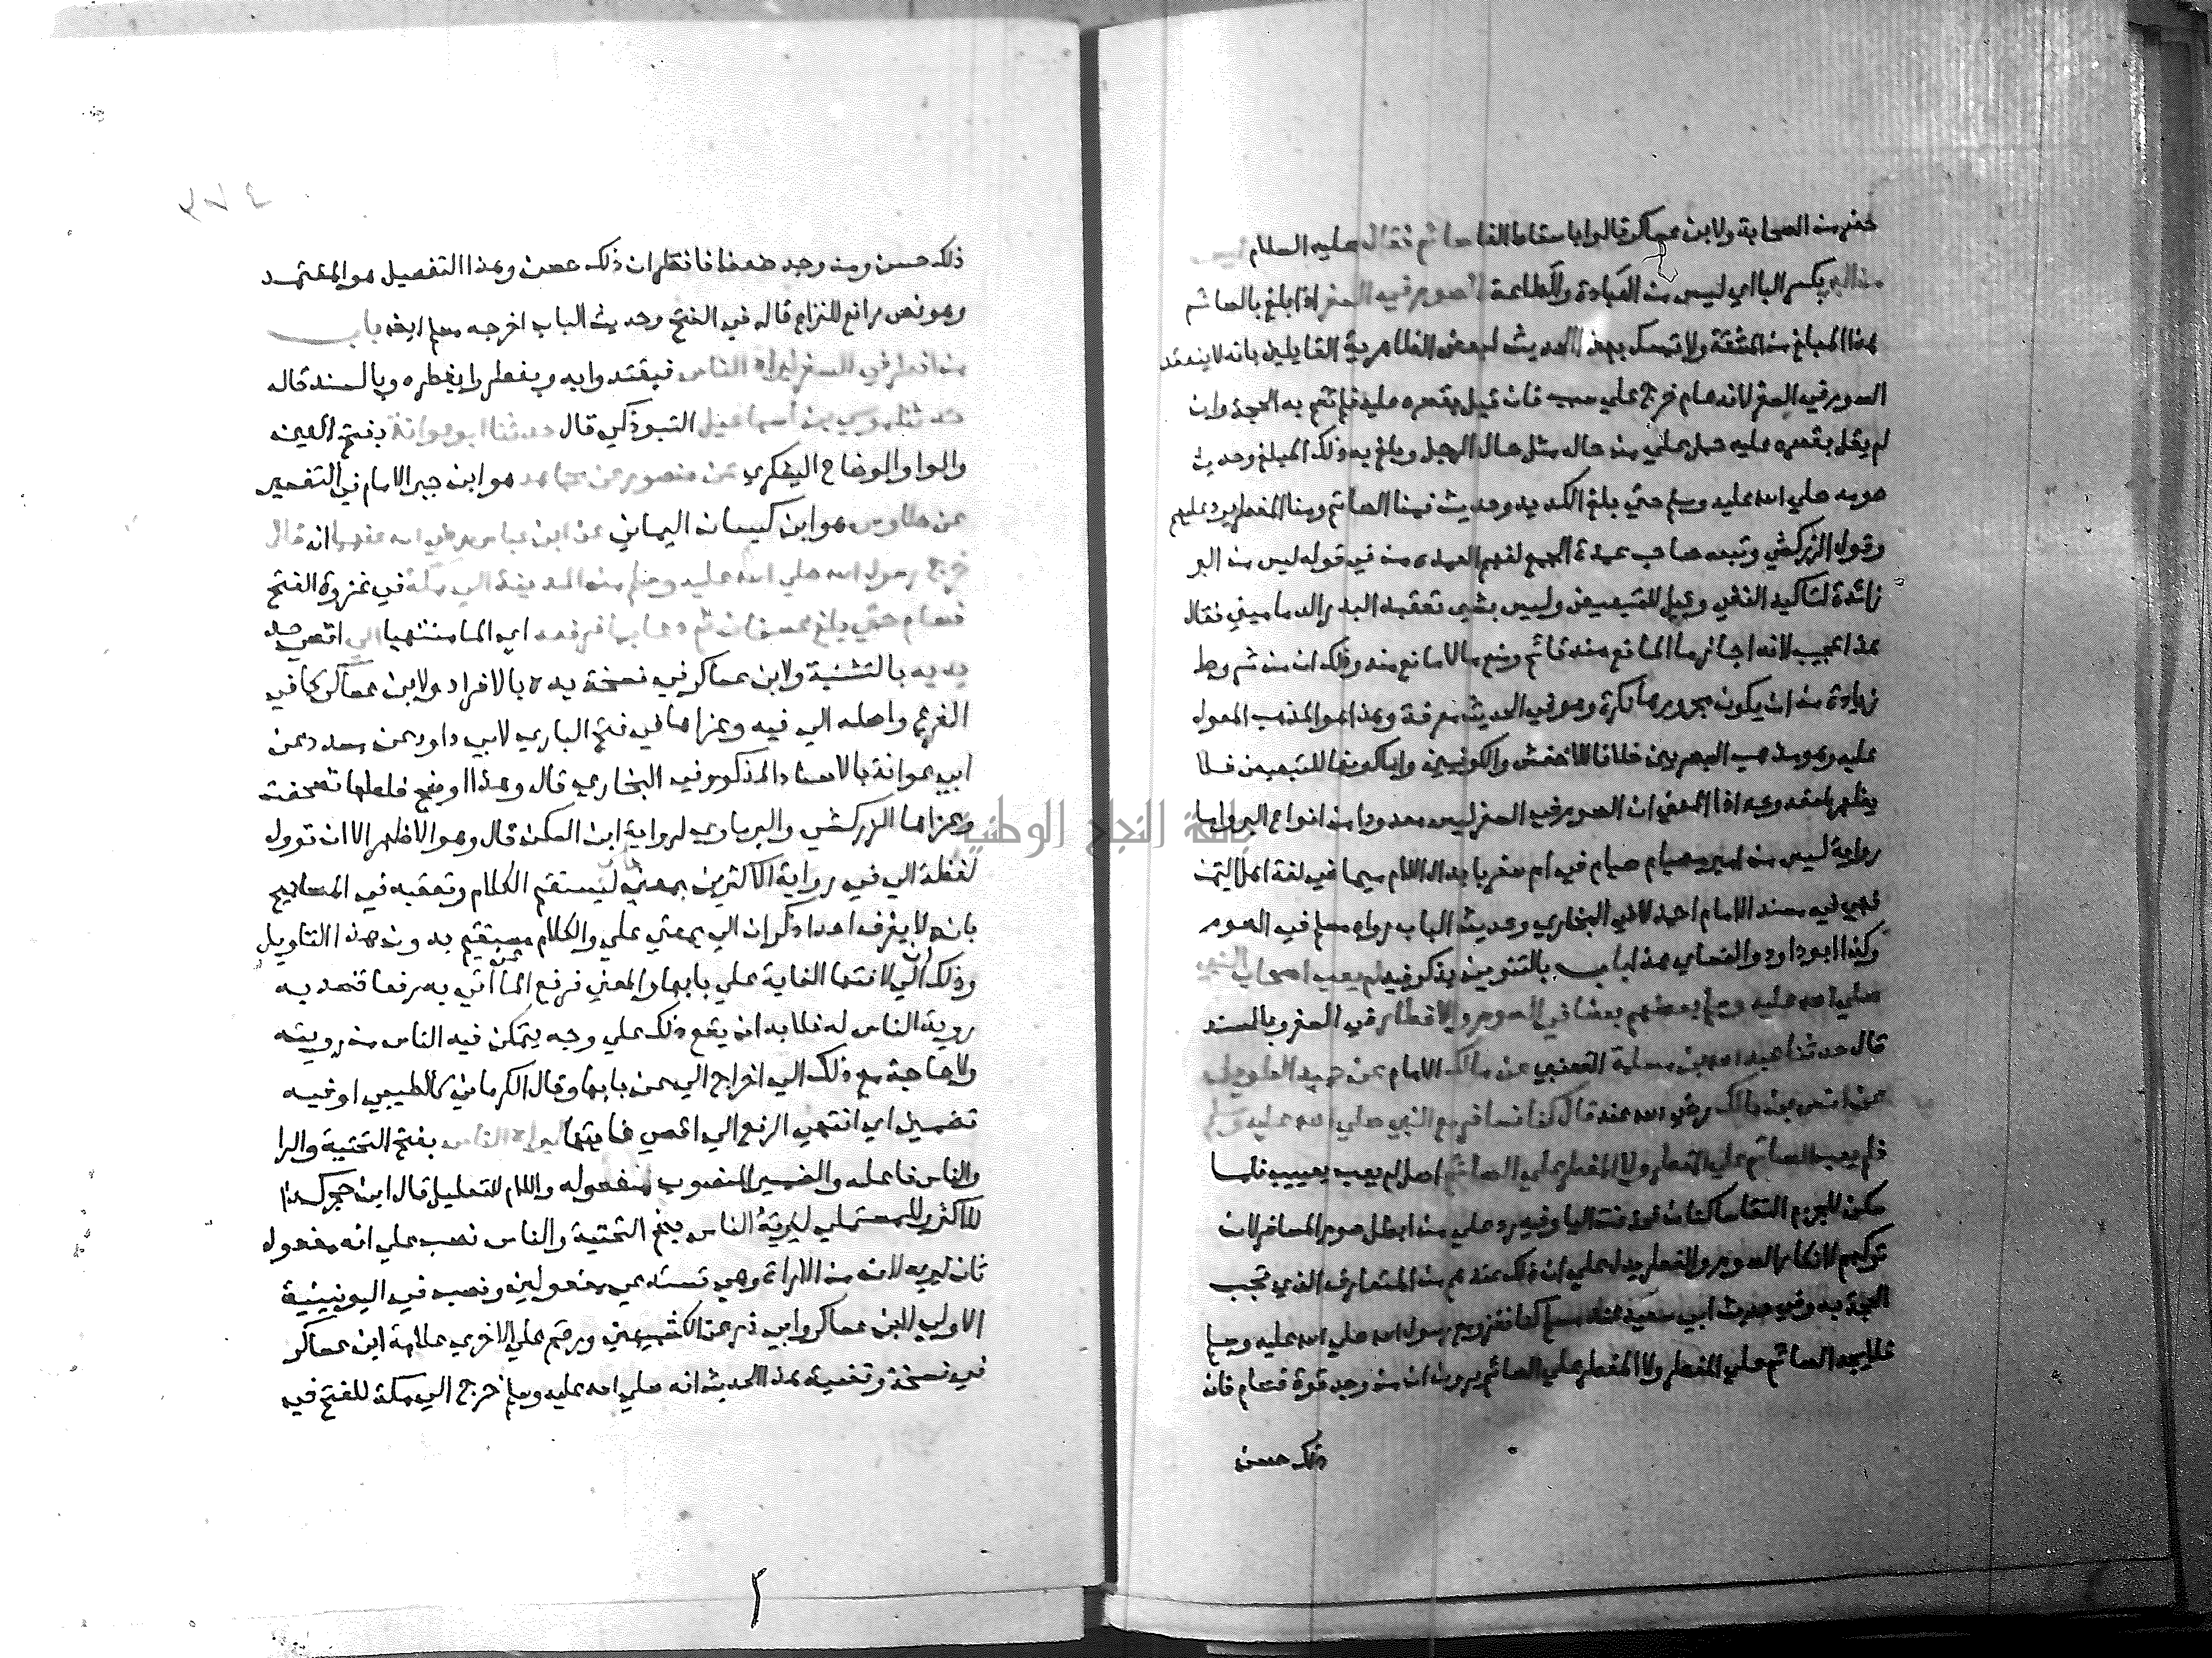 حضر من الصحابة ولابن عساكر قالوا باسقاط الفا صائم فقال عليه السلام ليس
من البر بكسر البااي ليس من العبادة والطاعة الصوم في السفر اذا بلغ بالصائم
هذا المبلغ من المشقة ولا تمسك بهذا الحديث لبعض الظاهرية القايلين بانه لا ينعقد
الصوم في السفر لانه عام خرج علي سبب فان قيل بقصره عليه فلم تقم به الحجة وان
لم يقل بقصره عليه حمل علي من حاله مثل حال الرجل وبلغ به ذلك المبلغ وحديث
صومه صلي الله عليه وسلم حتي بلغ الكديد وحديث فمنا الصائم ومنا المفطر يرد عليهم
وقول الزركشي وتبعه صاحب عمدة الجمع لفهم العمدة من في قوله ليس من البر
زائدة لتاكيد النفي وقيل للتبعيض وليس بشي تعقبه البدر الدماميني فقال
هذا عجيب لانه اجاز ما المانع منه قائم ومنع ما لا مانع منه وذلك ان من شروط
زيادة من ان يكون مجرورها نكرة وهو في الحديث معرفة وهذا هو المذهب المعول
عليه وهو مذهب البصريين خلافا للاخفش والكوفيين واما كونها للتبعيض فلا
يظهر لمنعه وجه اذا المعني ان الصوم في السفر ليس معدودا من انواع البر واما
رواية ليس من امبر امصيام في ام سفر بابدال اللام ميما في لغة اهل اليمن
فهي في مسند الامام احمد لا في البخاري وحديث الباب رواه مسلم في الصوم
وكذا ابو داود والنسائي هذا باب بالتنوين يذكر فيه لم يعب اصحاب النبي
صلي الله عليه وسلم بعضهم بعضا في الصوم والافطار في السفر وبالسند
قال حدثنا عبد الله بن مسلمة القعنبي عن مالك الامام عن حميد الطويل
عن انس بن مالك رضي الله عنه قال كنا نسافر مع النبي صلي الله عليه وسلم
فلم يعب الصائم علي المفطر ولا المفطر علي الصائم اصل لم يعب يعيب فلما
سكن للجزم التقا ساكنان فحذفت اليا وفيه رد علي من ابطل صوم المسافر لان
تركهم لانكار الصوم والفطر يدل علي ان ذلك عندهم من المتعارف الذي تجب
الحجة به وفي حديث ابي سعيد عند مسلم كنا نغزو مع رسول الله صلي الله عليه وسلم
فلا يجد الصائم علي المفطر ولا المفطر علي الصائم يرون ان من وجد قوة فصام فان
ذلك حسن
ذلك حسن ومن وجد ضعفا فافطر ان ذلك حسن وهذا التفصيل هو المعتمد
وهو نص رافع للنزاع قاله في الفتح وحديث الباب اخرجه مسلم ايضا باب
من افطر في السفر ليراه الناس فيقتدوا به ويفطروا بفطره وبالسند قال
حدثنا موسي بن اسماعيل التبوذكي قال حدثنا ابو عوانة بفتح العين
والواو الوضاح اليشكري عن منصور عن مجاهد هو ابن جبر الامام في التفسير
عن طاوس هو ابن كيسان اليماني عن ابن عباس رضي الله عنهما انه قال
خرج رسول الله صلي الله عليه وسلم من المدينة الي مكة في غزوة الفتح
فصام حتي بلغ عسفان ثم دعا بما فرفعه اي الما منتهيا الي اقصي حد
يديه بالتثنية ولابن عساكر في نسخة يده بالافراد ولابن عساكر كما في
الفرع واصله الي فيه وعزاها في فتح الباري لابي داود عن مسدد عن
ابي عوانة بالاسناد المذكور في البخاري قال وهذا اوضح فلعلها تصحفت
وعزاها الزركشي والبرماوي لرواية ابن السكن قال وهو الاظهر الا ان تؤول
لفظة الي في رواية الاكثرين بمعني علي ليستقيم الكلام وتعقبه في المصابيح
بانه لا يعرف احدا ذكر ان الي بمعني علي والكلام مستقيم بدون هذا التاويل
وذلك ان الي لانتها الغاية علي بابها والمعني فرفع الما اتي به رفعا قصد به
روية الناس له فلا بد ان يقع ذلك علي وجه يتمكن فيه الناس من رويته
ولا حاجة مع ذلك الي اخراج الي عن بابها وقال الكرماني كالطيبي او فيه
تضمين اي انتهي الرفع الي اقصي غايتها ليراه الناس بفتح التحتية والرا
والناس فاعله والضمير المنصوب مفعوله واللام للتعليل قال ابن حجر كذا
للاكثر وللمستملي ليريه الناس بضم التحتية والناس نصب علي انه مفعول
ثان ليريه لانه من الاراة وهي تستدعي مفعولين ونصب في اليونينية
الاولي لابن عساكر وابي ذر عن الكشميهني ورقم علي الاخري علامة ابن عساكر
في نسخة وقصة هذا الحديث انه صلي الله عليه وسلم خرج الي مكة للفتح فيه
جامعة النجاح الوطنية